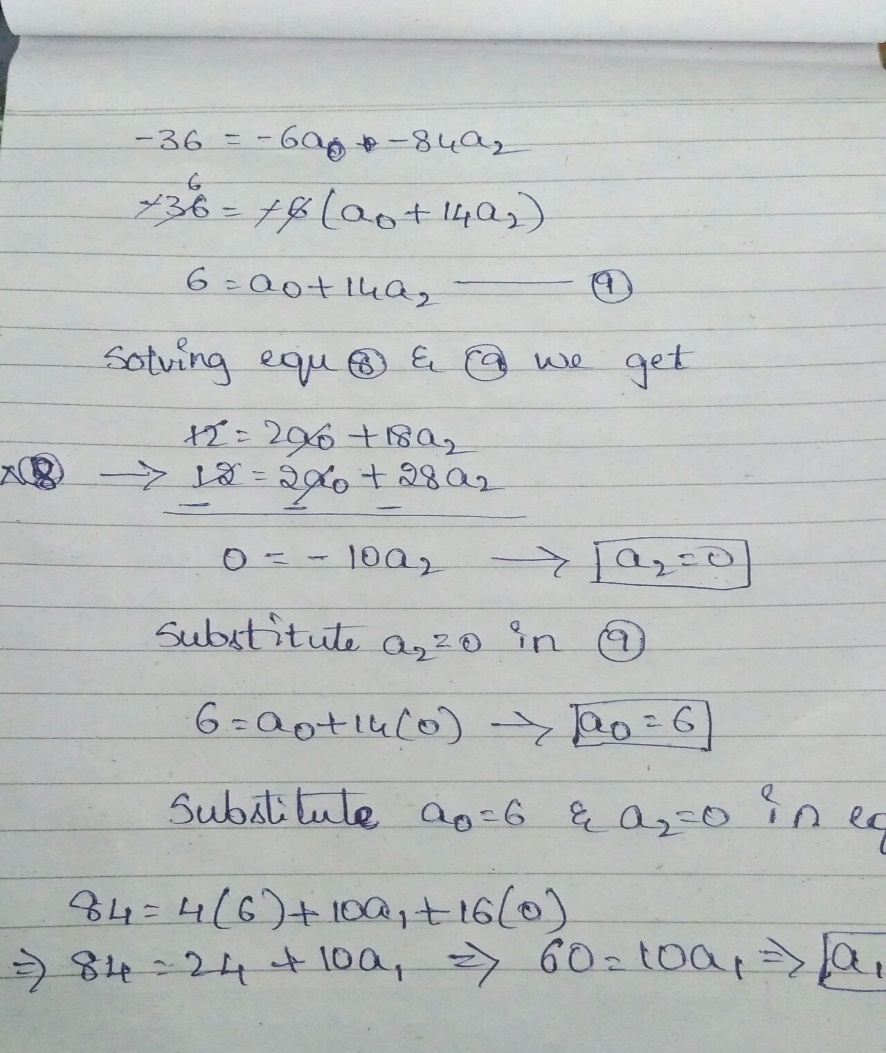 -36 = -6a₀ -84a₂
-36 = -6(a₀+14a₂)
6 = a₀+14a₂ —— ⑨
Solving equ ⑧ & ⑨ we get
12 = 2a₀ +18a₂
⑧ → 12 = 2a₀ + 28a₂
0 = - 10a₂ → a₂=0
Substitute a₂=0 in ⑨
6=a₀+14(0) → a₀=6
Substitute a₀=6 & a₂=0 in
84=4(6)+10a₁+16(0)
⇒ 84=24 +10a₁ ⇒ 60=10a₁ ⇒ a₁